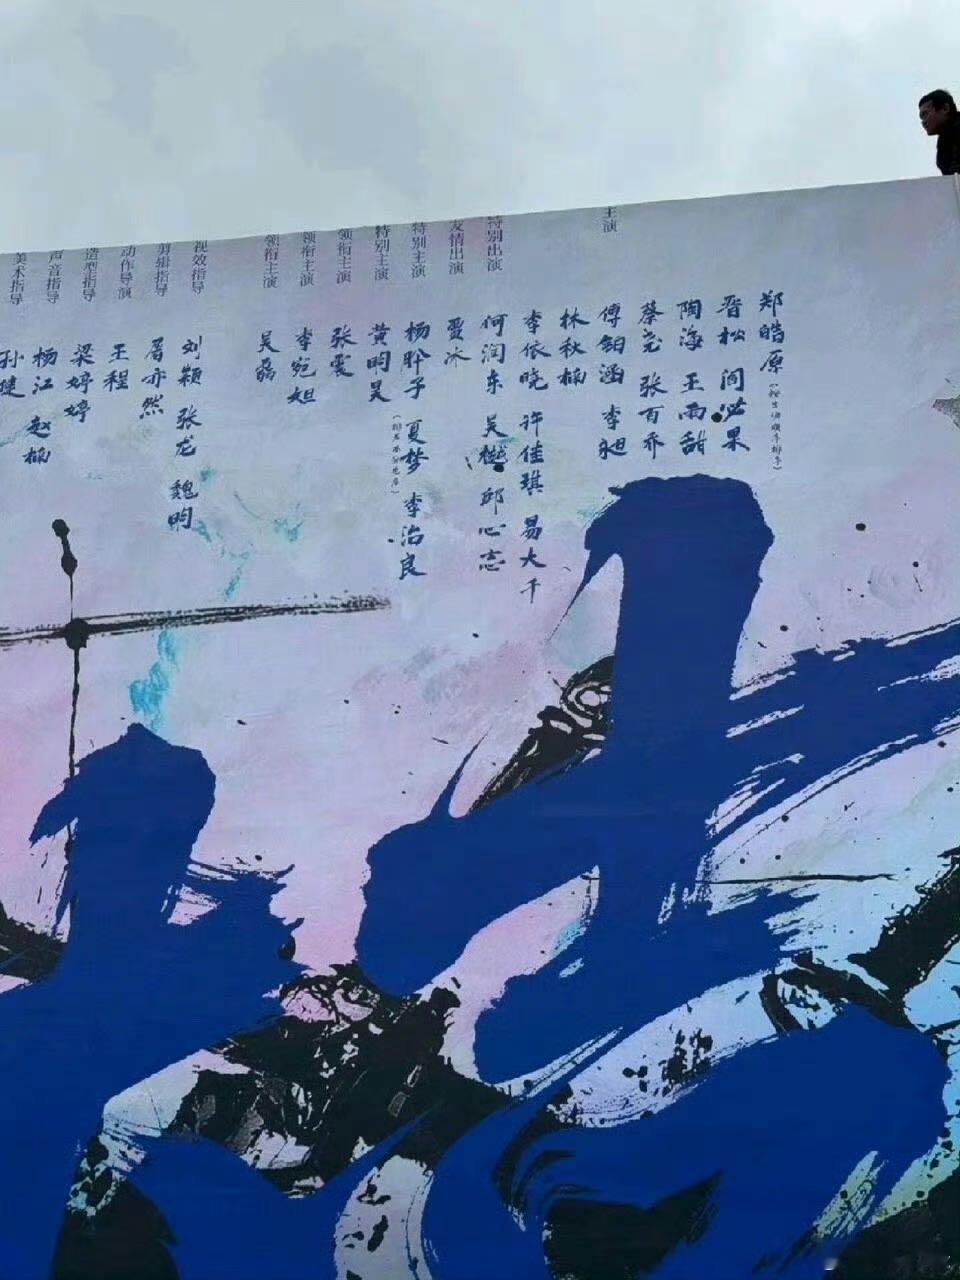 美术指导 孙健
声音指导 杨江 赵楠
造型指导 梁婷婷
动作导演 王程
剪辑指导 屠亦然
视效指导 刘颖 张龙 魏昀
领衔主演 吴磊
领衔主演 李宛妲
领衔主演 张震
特别主演 黄昀昊
特别主演 杨聆子 夏梦 李治良
(排名不分先后)
友情出演 贾冰
特别出演 何润东 吴樾 邱心志
主演
李依晓 许佳琪 易大千
林秋楠
傅铂涵 李昶
蔡尧 张百乔
陶海 王雨甜
晋松 闫泌果
郑皓原
(按出场顺序排序)